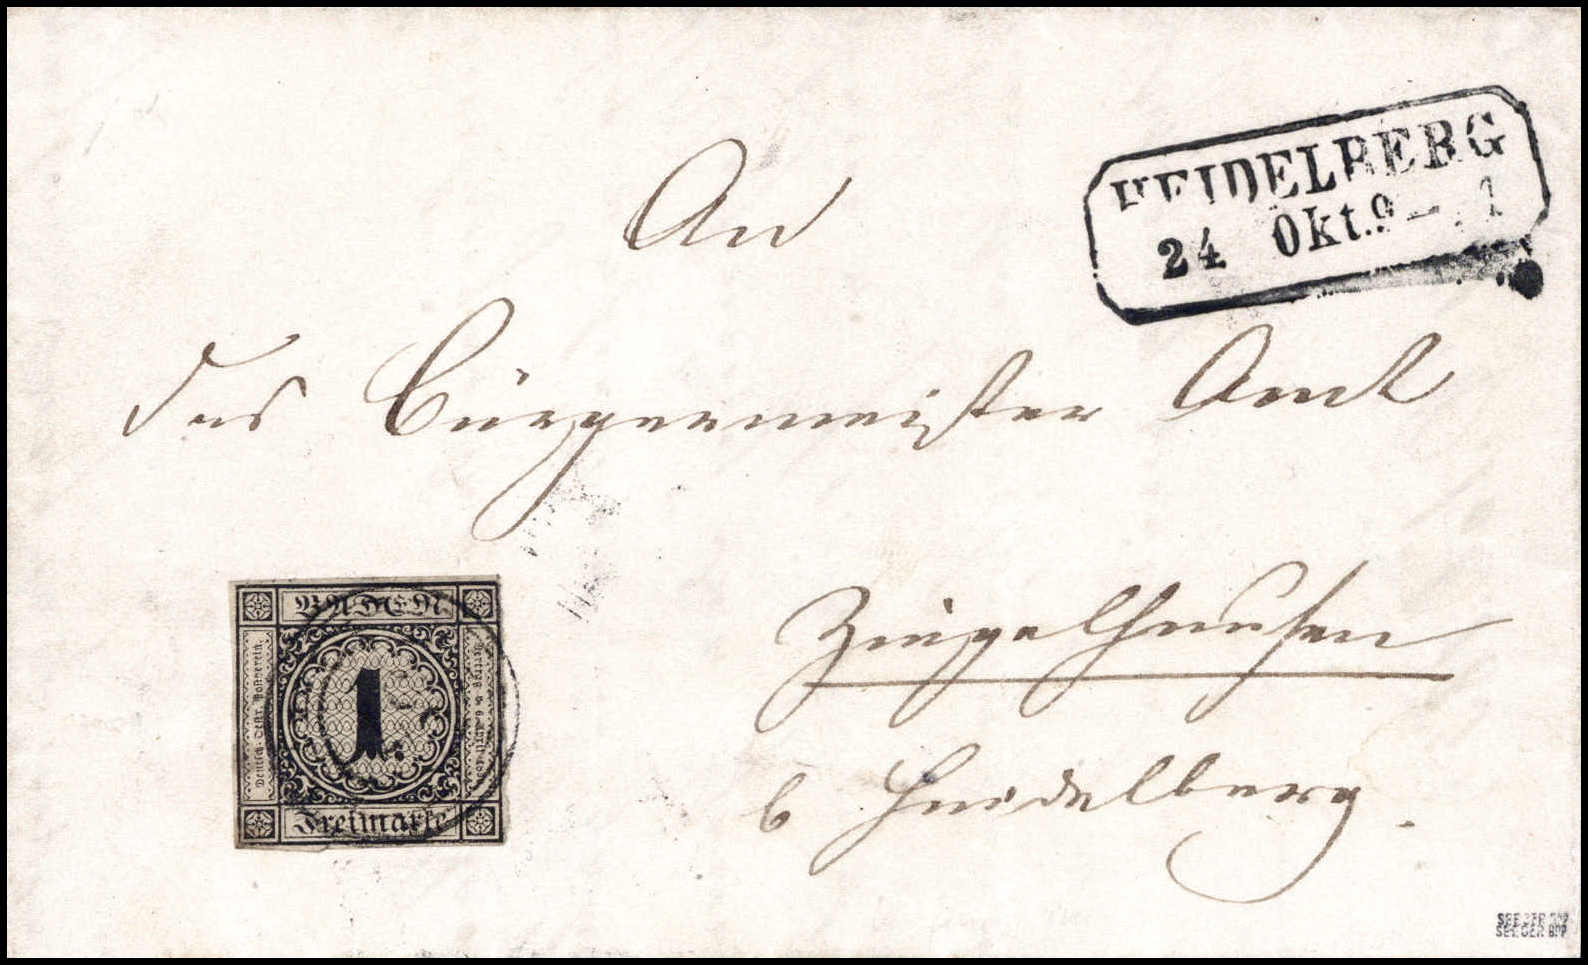 HEIDELBERG
24 Okt. 9 - 1
An
das Bürgermeister Amt
Ziegelhausen
b Heidelberg.
BADEN
Deutsch-Oestr. Postverein.
1
Vertrag v. 6. April 1850
Freimarke
SEEGER BPP
SEEGER BPP